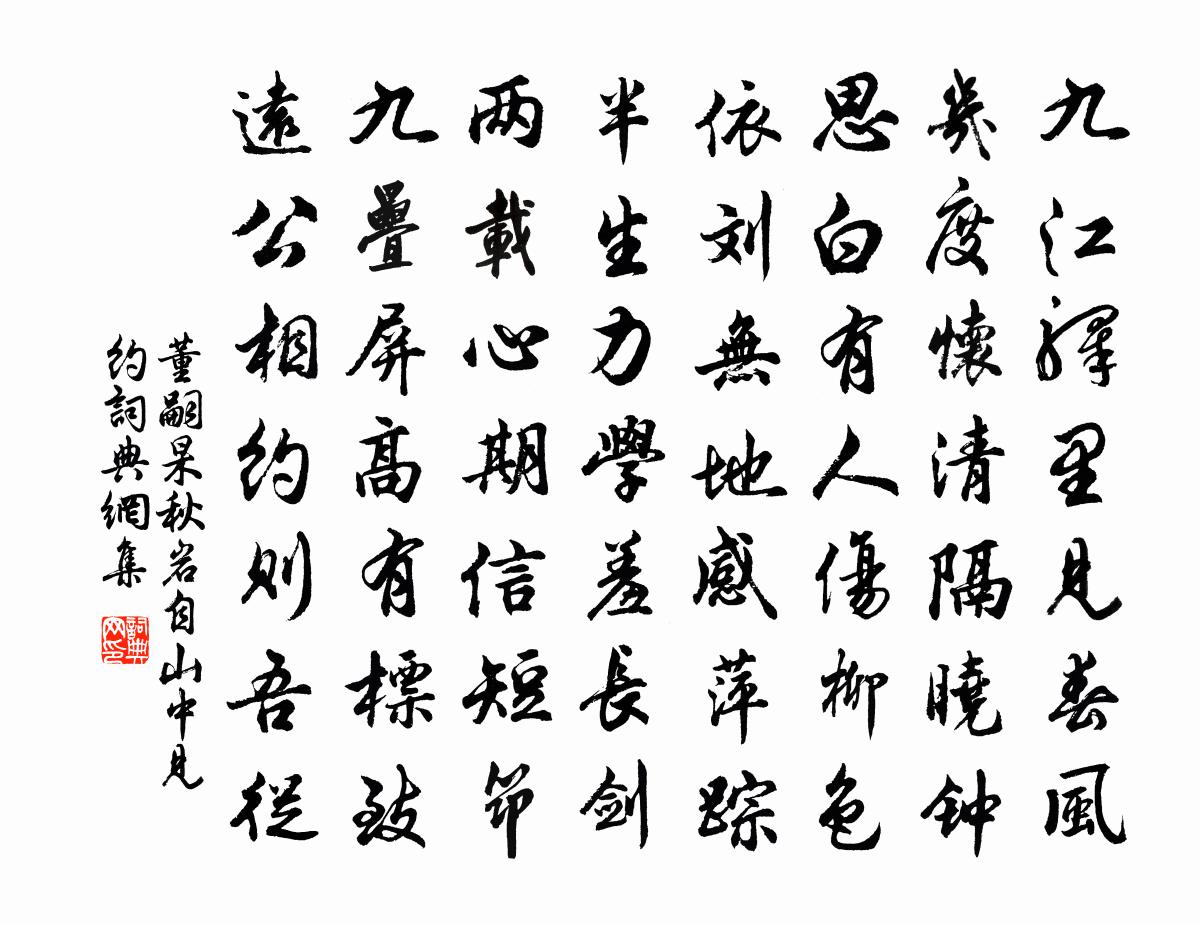 九江驛里見春風
幾度懷清隔曉钟
思白有人傷柳色
依刘無地感萍踪
半生力學羞長劍
两載心期信短筇
九疊屏高有標致
遠公相約則吾從
董嗣杲秋岩自山中見
約詞典網集
詞典网印